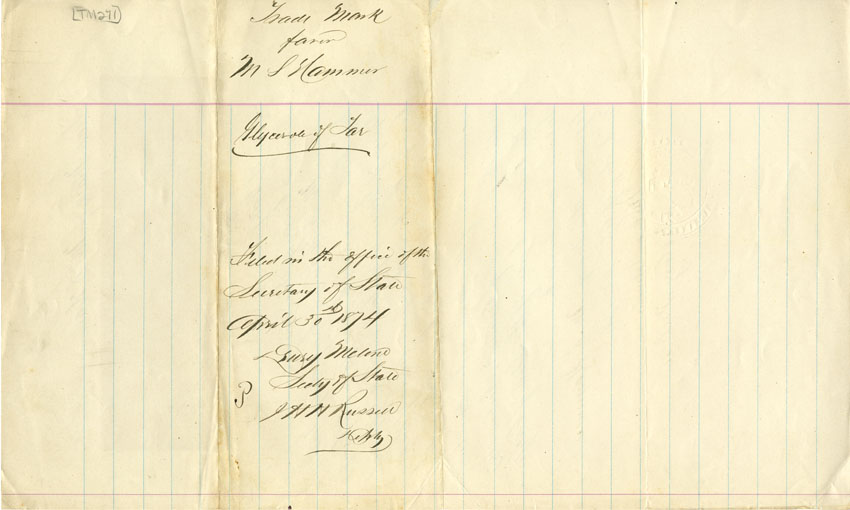 [TM271]
Trade Mark
favor
M S Hammer
Glycerole of Tar
Filed in the office of the
Secretary of State
April 30th 1874
Drury Melone
Secty of State
J H H Russell
Depty